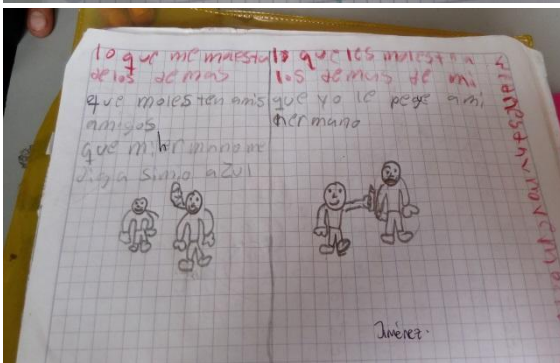 lo que me molesta
de los demas
que molesten amis
amigos
que mi hermano me
diga simio azul
lo que les molesta
los demas de mi
que yo le pege ami
hermano
Jiménez.